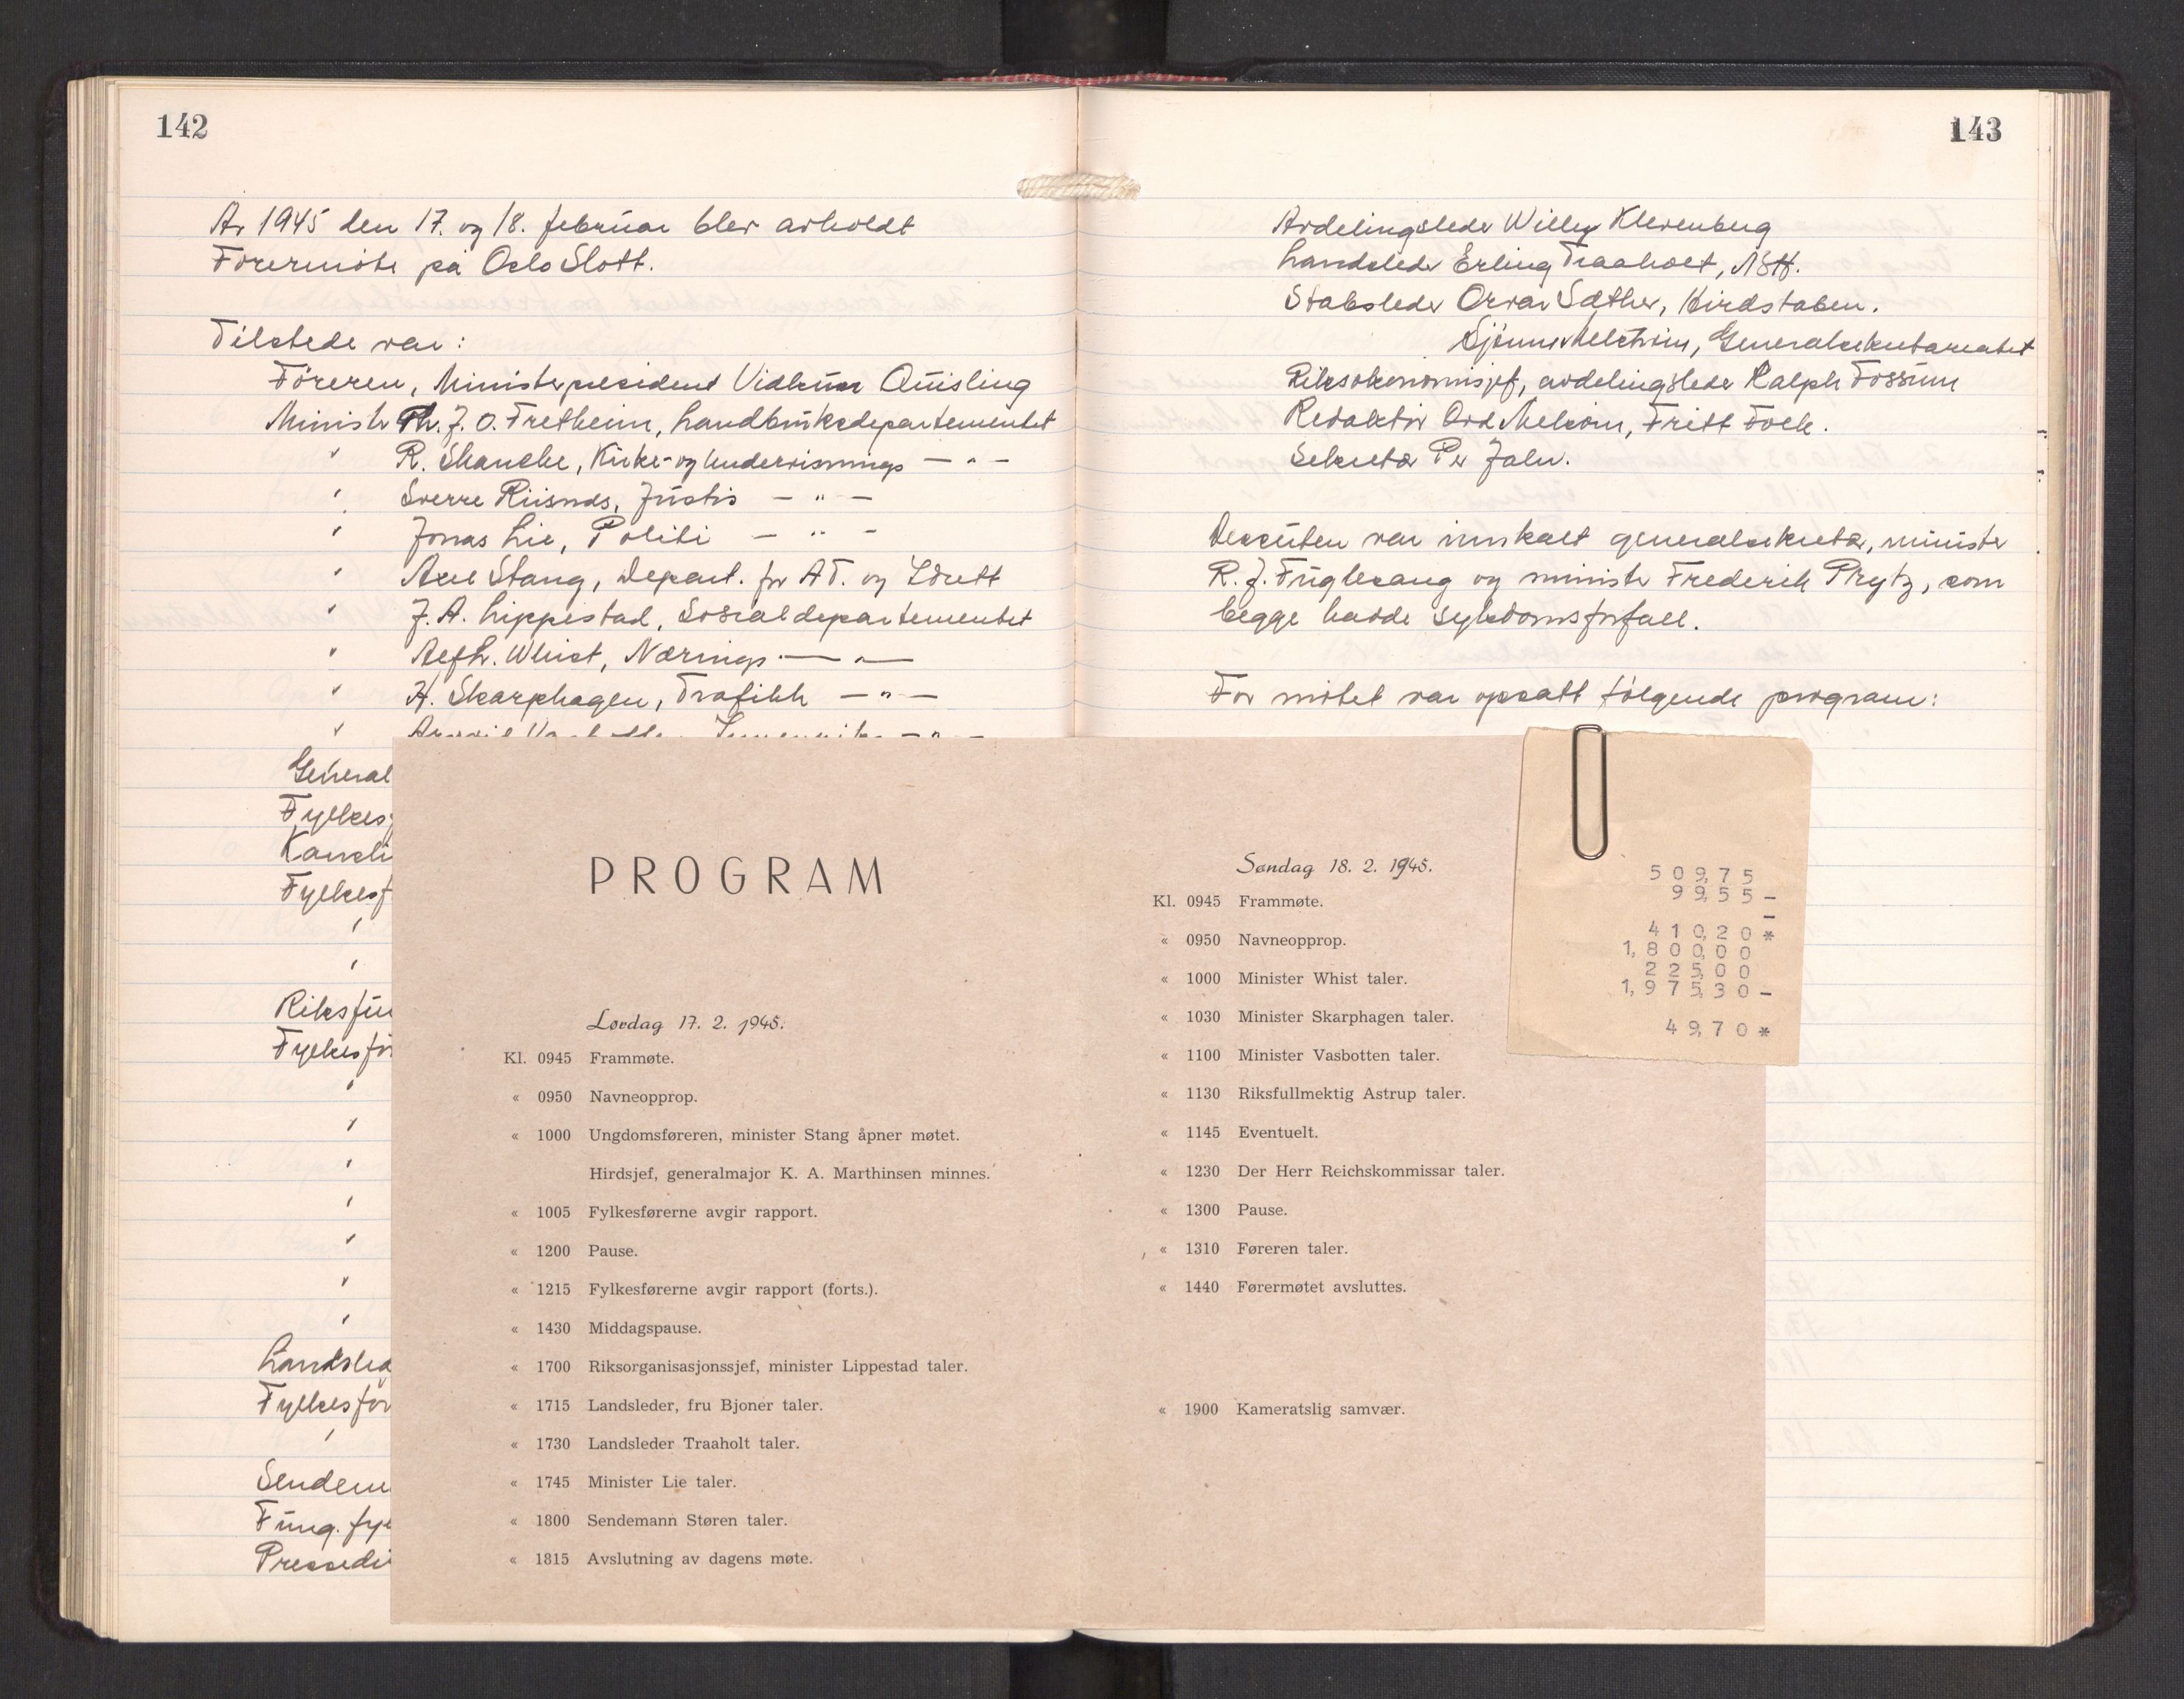 142
År 1945 den 17. og 18. februar blev avholdt
Förermöte på Oslo Slott.
Tilstede var:
Föreren, Ministerpresident Vidkun Quisling
Minister Th. J. O. Fretheim, Landbruksdepartementet
" R. Skancke, Kirke- og Undervisnings — " —
" Sverre Riisnæs, Justis — " —
" Jonas Lie, Politi — " —
" Axel Stang, Depart. for AT. og Idrett
" J. A. Lippestad, Sosialdepartementet
" Alf L. Whist, Nærings — " —
" H. Skarphagen, Trafikk — " —
"
General
Fylkes
Kanseli
Fylkesf
"
"
Riksfu
Fylkesför
"
"
"
"
"
"
"
Landsled
Fylkesför
"
Sendem
Fung. fyl
Pressedi
PROGRAM
Lørdag 17. 2. 1945.
Kl. 0945 Frammøte.
« 0950 Navneopprop.
« 1000 Ungdomsføreren, minister Stang åpner møtet.
Hirdsjef, generalmajor K. A. Marthinsen minnes.
« 1005 Fylkesførerne avgir rapport.
« 1200 Pause.
« 1215 Fylkesførerne avgir rapport (forts.).
« 1430 Middagspause.
« 1700 Riksorganisasjonssjef, minister Lippestad taler.
« 1715 Landsleder, fru Bjoner taler.
« 1730 Landsleder Traaholt taler.
« 1745 Minister Lie taler.
« 1800 Sendemann Støren taler.
« 1815 Avslutning av dagens møte.
143
Avdelingsleder Willy Klevenberg
Landsleder Erling Traaholt, NSH.
Stabsleder Orvar Sæther, Hirdstaben.
Generalsekretariatet
Riksökonomisjef, avdelingsleder Ralph Fossum
Redaktör Odd Melsom, Fritt Folk.
Sekretær Per Jahr.
Dessuten var innkalt generalsekretær, minister
R. J. Fuglesang og minister Frederik Prytz, som
begge hadde sykdomsforfall.
For mötet var opsatt följende program:
Søndag 18. 2. 1945.
Kl. 0945 Frammøte.
« 0950 Navneopprop.
« 1000 Minister Whist taler.
« 1030 Minister Skarphagen taler.
« 1100 Minister Vasbotten taler.
« 1130 Riksfullmektig Astrup taler.
« 1145 Eventuelt.
« 1230 Der Herr Reichskommissar taler.
« 1300 Pause.
« 1310 Føreren taler.
« 1440 Førermøtet avsluttes.
« 1900 Kameratslig samvær.
509,75
99,55 –
–
410,20 *
1,800,00
225,00
1,975,30 –
49,70 *